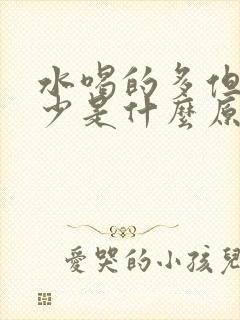 水喝的多但
少是什麼原
愛哭的小孩兒